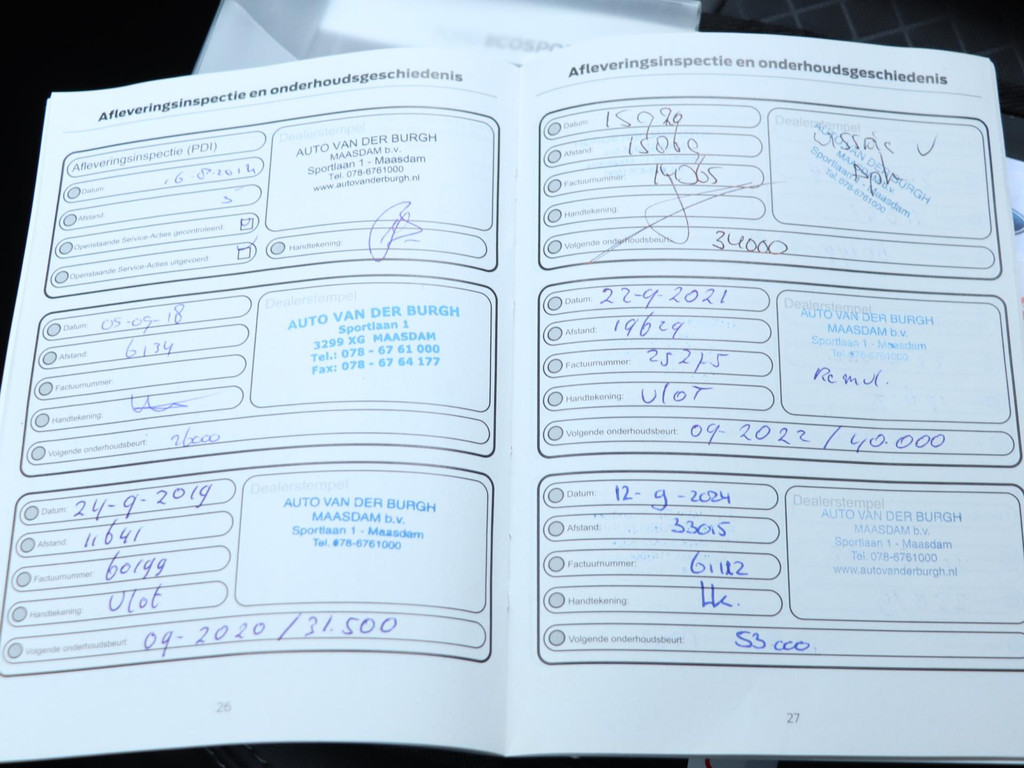 ECOSPO
Afleveringsinspectie en onderhoudsgeschiedenis
Afleveringsinspectie (PDI)
Datum:
Afstand: 5
Openstaande Service-Acties gecontroleerd:
Openstaande Service-Acties uitgevoerd:
Dealerstempel
AUTO VAN DER BURGH
MAASDAM b.v.
Sportlaan 1 - Maasdam
Tel. 078-6761000
www.autovanderburgh.nl
Handtekening:
Datum: 05-09-18
Afstand: 6134
Factuurnummer:
Handtekening:
Volgende onderhoudsbeurt: 26000
Dealerstempel
AUTO VAN DER BURGH
Sportlaan 1
3299 XG MAASDAM
Tel.: 078 - 67 61 000
Fax: 078 - 67 64 177
Datum: 24-9-2019
Afstand: 11641
Factuurnummer: 60199
Handtekening: Vlot
Volgende onderhoudsbeurt: 09-2020 / 31.500
Dealerstempel
AUTO VAN DER BURGH
MAASDAM b.v.
Sportlaan 1 - Maasdam
Tel. 078-6761000
26
Afleveringsinspectie en onderhoudsgeschiedenis
Datum:
Afstand: 15069
Factuurnummer: 14065
Handtekening:
Volgende onderhoudsbeurt: 34000
Dealerstempel
MAASDAM b.v.
Sportlaan 1 - Maasdam
Tel. 078-6761000
Datum: 22-9-2021
Afstand: 19629
Factuurnummer: 25275
Handtekening: Vlot
Volgende onderhoudsbeurt: 09-2022 / 40.000
Dealerstempel
AUTO VAN DER BURGH
MAASDAM b.v.
Sportlaan 1 - Maasdam
Tel. 078-6761000
Remvl.
Datum: 12-9-2024
Afstand: 33015
Factuurnummer:
Handtekening:
Volgende onderhoudsbeurt: 53000
Dealerstempel
AUTO VAN DER BURGH
MAASDAM b.v.
Sportlaan 1 - Maasdam
Tel. 078-6761000
www.autovanderburgh.nl
27